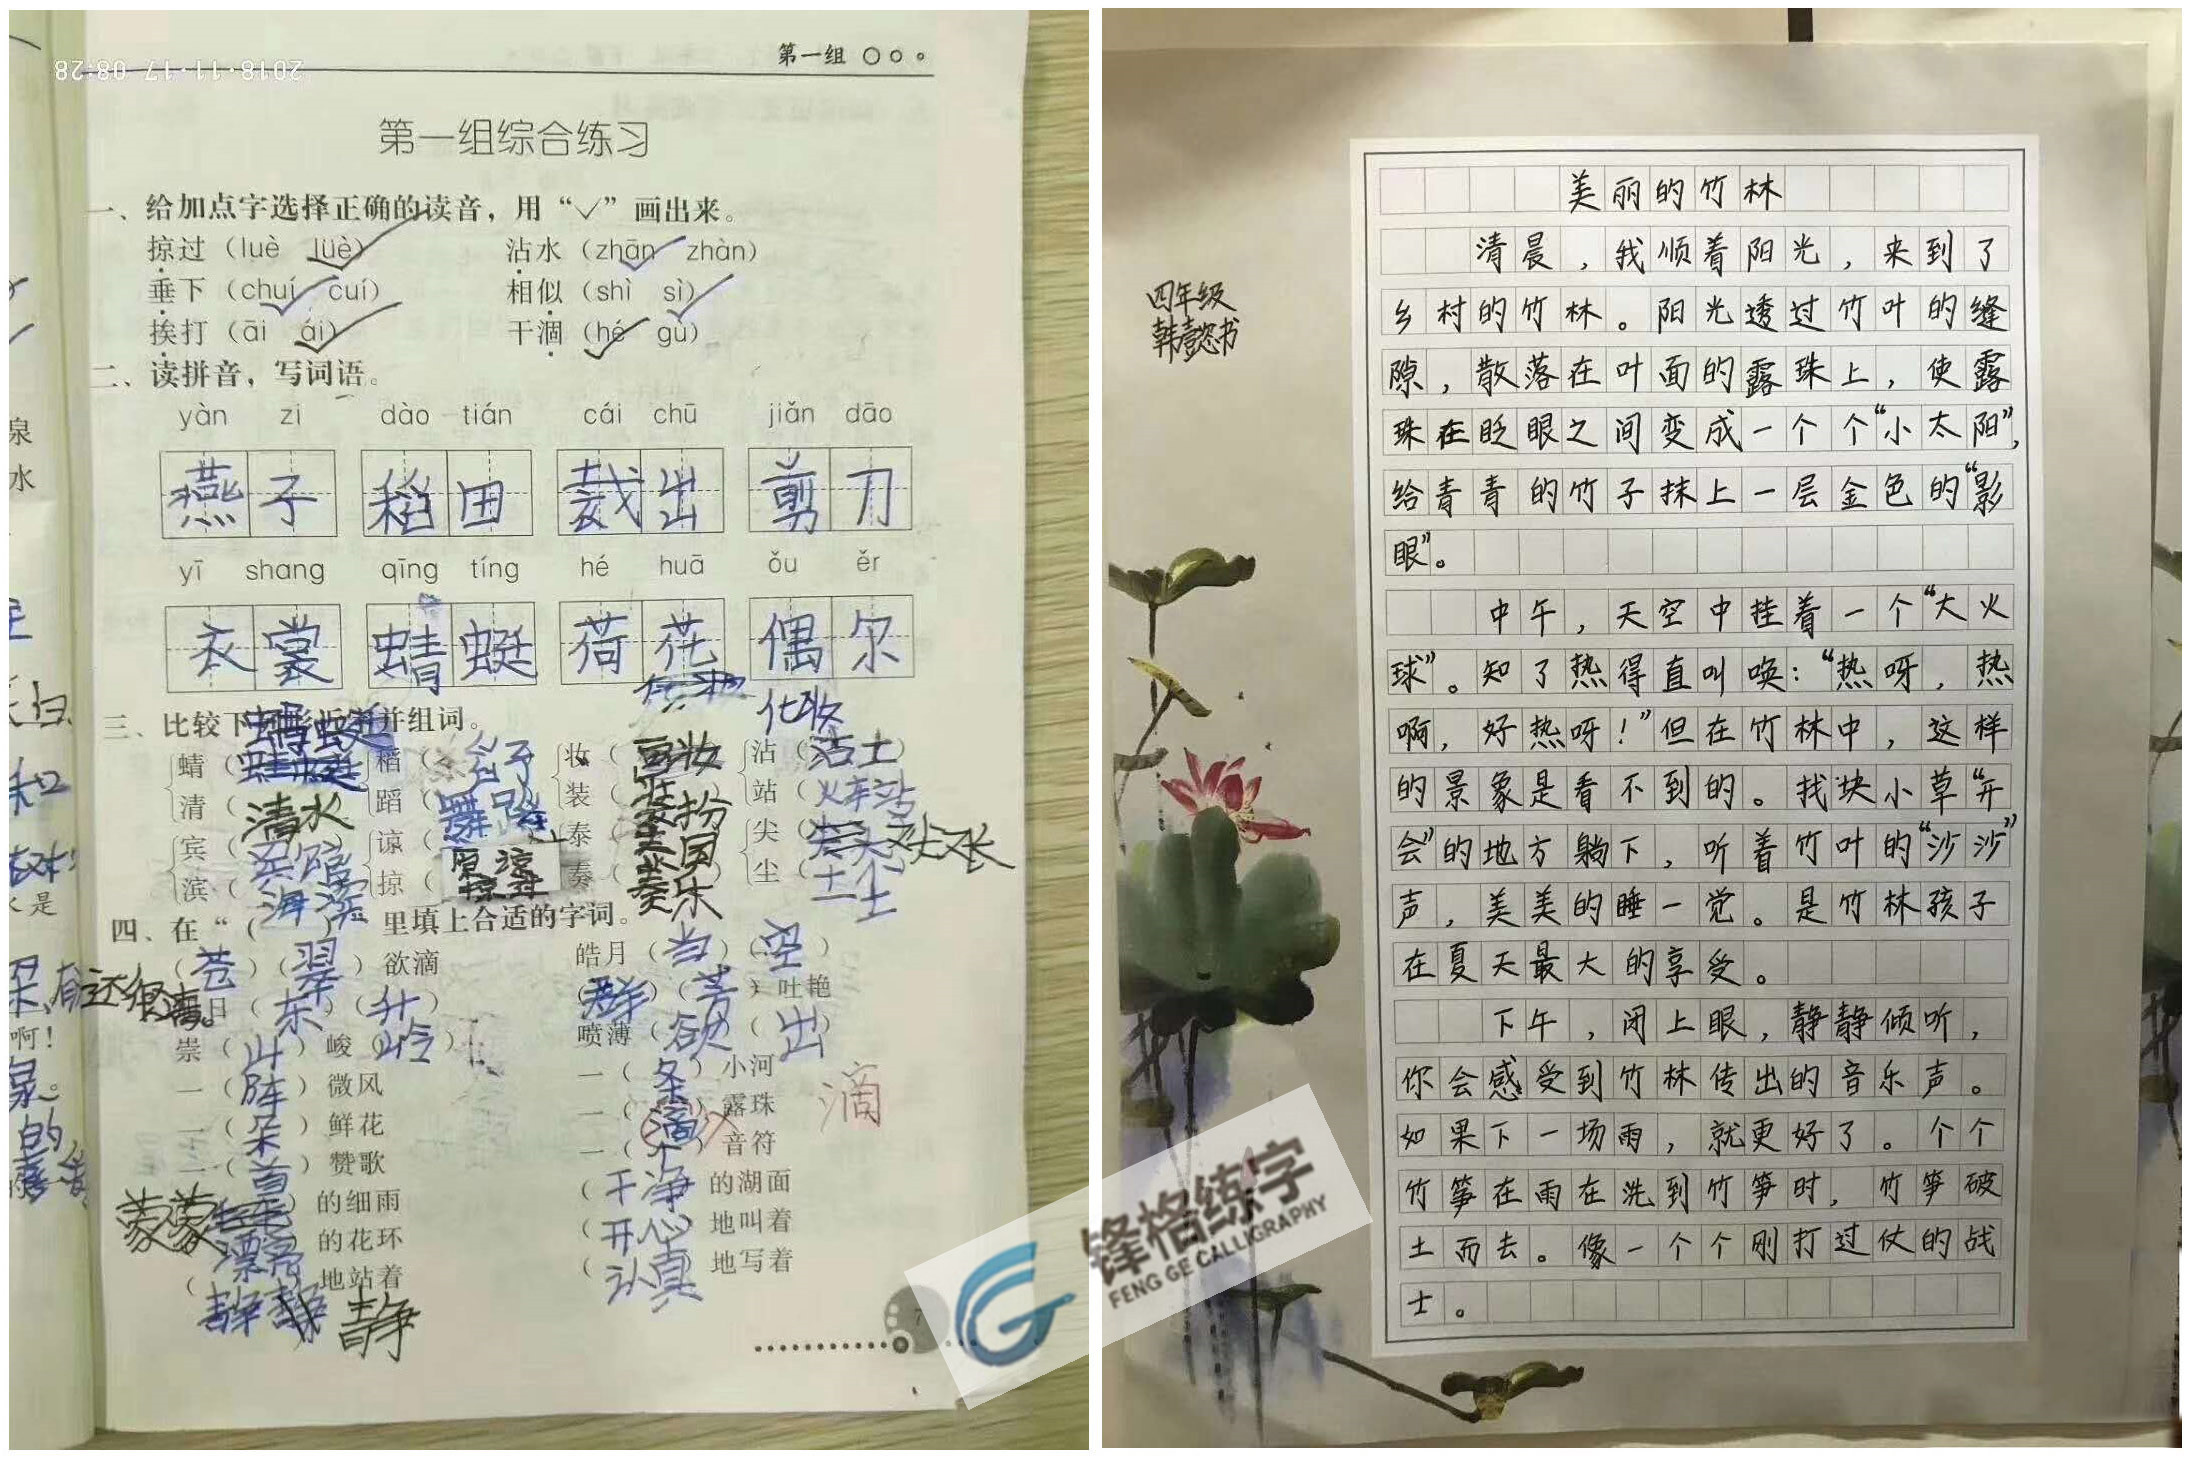 2018-11-17 08:28
第一组
第一组综合练习
一、给加点字选择正确的读音，用“✓”画出来。
掠过（luè lüè） 沾水（zhān zhàn）
垂下（chuí cuí） 相似（shì sì）
挨打（āi ái） 干涸（hé gù）
二、读拼音，写词语。
yàn zi dào tián cái chū jiǎn dāo
燕子 稻田 裁出 剪刀
yī shang qīng tíng hé huā ǒu ěr
衣裳 蜻蜓 荷花 偶尔
化妆
三、比较下 并组词。
蜻（ 稻（ 妆（画妆 沾（沾土）
清（清水 蹈（舞蹈 装（装扮 站（火车站
宾（宾馆 谅（原谅 泰（泰国 尖（
滨（海滨 掠（ 奏（奏乐 尘（土尘
四、在“（ ）里填上合适的字词。
（苍）（翠）欲滴 皓月（当）（空）
日（东）（升） （群）（芳）吐艳
崇（山）峻（岭） 喷薄（欲）（出）
一（阵）微风 一（条）小河
一（朵）鲜花 一（滴）露珠 滴
一（首）赞歌 一（个）音符
蒙蒙 的细雨 （干净 的湖面
漂亮 的花环 （开心）地叫着
（静静 静 地站着 （认真 地写着
7
四年级
韩懿恣书
美丽的竹林
清晨，我顺着阳光，来到了
乡村的竹林。阳光透过竹叶的缝
隙，散落在叶面的露珠上，使露
珠在眨眼之间变成一个个“小太阳”，
给青青的竹子抹上一层金色的“影
眼”。
中午，天空中挂着一个“大火
球”。知了热得直叫唤：“热呀，热
啊，好热呀！”但在竹林中，这样
的景象是看不到的。找块小草“开
会”的地方躺下，听着竹叶的“沙沙”
声，美美的睡一觉。是竹林孩子
在夏天最大的享受。
下午，闭上眼，静静倾听，
你会感受到竹林传出的音乐声。
如果下一场雨，就更好了。个个
竹笋在雨在洗到竹笋时，竹笋破
土而去。像一个个刚打过仗的战
士。
锋格练字
FENG GE CALLIGRAPHY